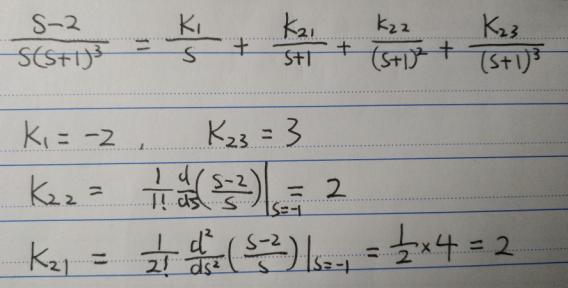 (s-2)/(s(s+1)³) = K₁/s + K₂₁/(s+1) + K₂₂/(s+1)² + K₂₃/(s+1)³
K₁ = -2 , K₂₃ = 3
K₂₂ = 1/1! d/ds((s-2)/s)|s=-1 = 2
K₂₁ = 1/2! d²/ds²((s-2)/s)|s=-1 = 1/2 × 4 = 2